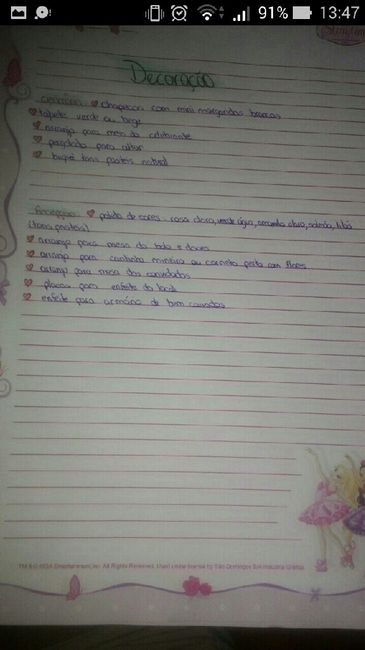 91% 13:47
Decoração
cerimônia ♥ chapelão com mini margaridas brancas
♥ tapete verde ou bege
♥ arranjo para mesa do celebrante
♥ pergolado para altar
♥ buquê tons pasteis natural
Recepção ♥ paleta de cores - rosa claro, verde água, amarelo claro, salmão, lilás
(tons pasteis)
♥ arranjo para mesa do bolo e doces
♥ arranjo para cadeira ou com flores
♥ arranjo para mesa dos convidados
♥ placas para enfeite do local
♥ enfeite para armário de bem casados
TM & © Entertainment, Inc. All Rights Reserved. Used under license by São Domingos S/A Indústria Gráfica.